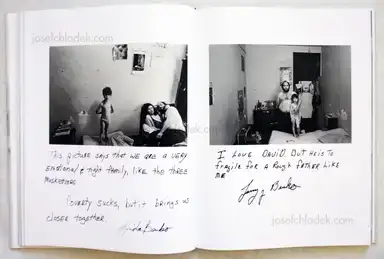 josefchladek.com
josefchladek.com
This picture says that we are a very
emotional & tight family, like the three
musketeers
Poverty sucks, but it brings us
closer together.
Linda Benko
I LOVE DAVID. BUT HE IS TO
fragile for A Rough father Like
me
Jerry Benko
josefchladek.com
josefchladek.com